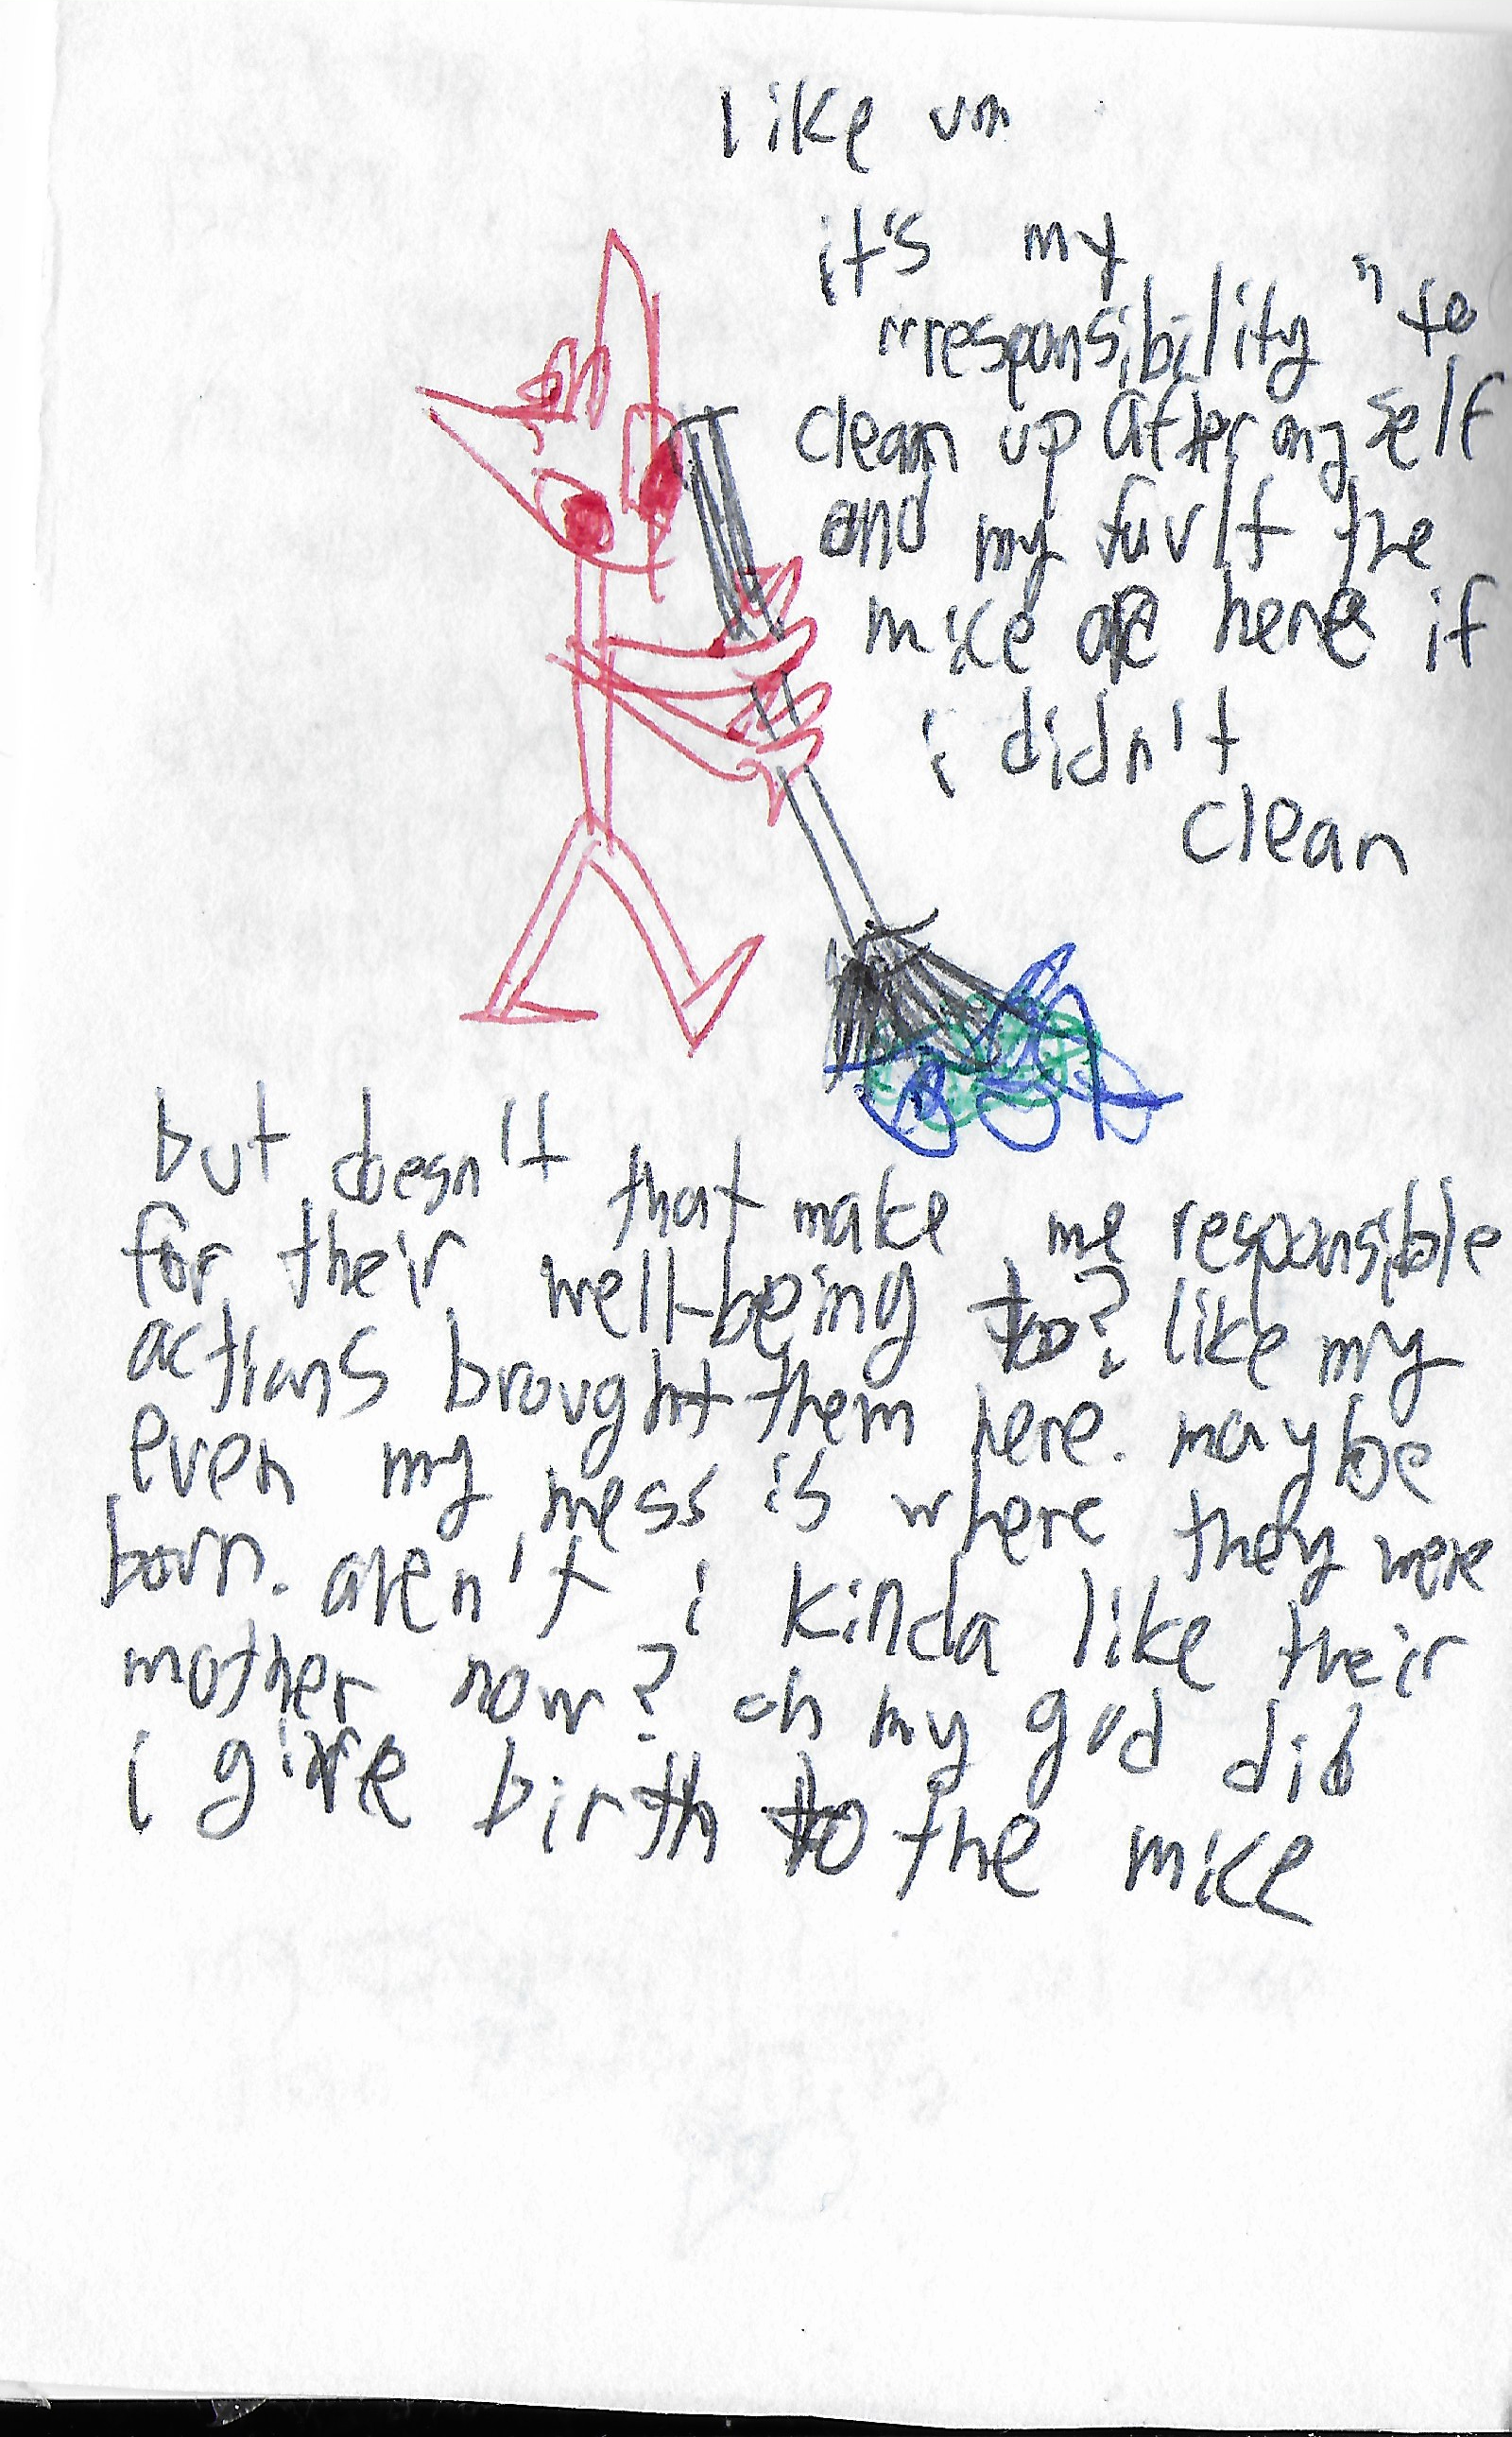 like um
it's my
"responsibility" to
clean up after myself
and my fuvlt the
mice are here if
i didn't
clean
but doesn't that make me responsible
for their well-being too? like my
actions brought them here. maybe
even my mess is where they were
born. aren't i kinda like their
mother now? oh my god did
i give birth to the mice